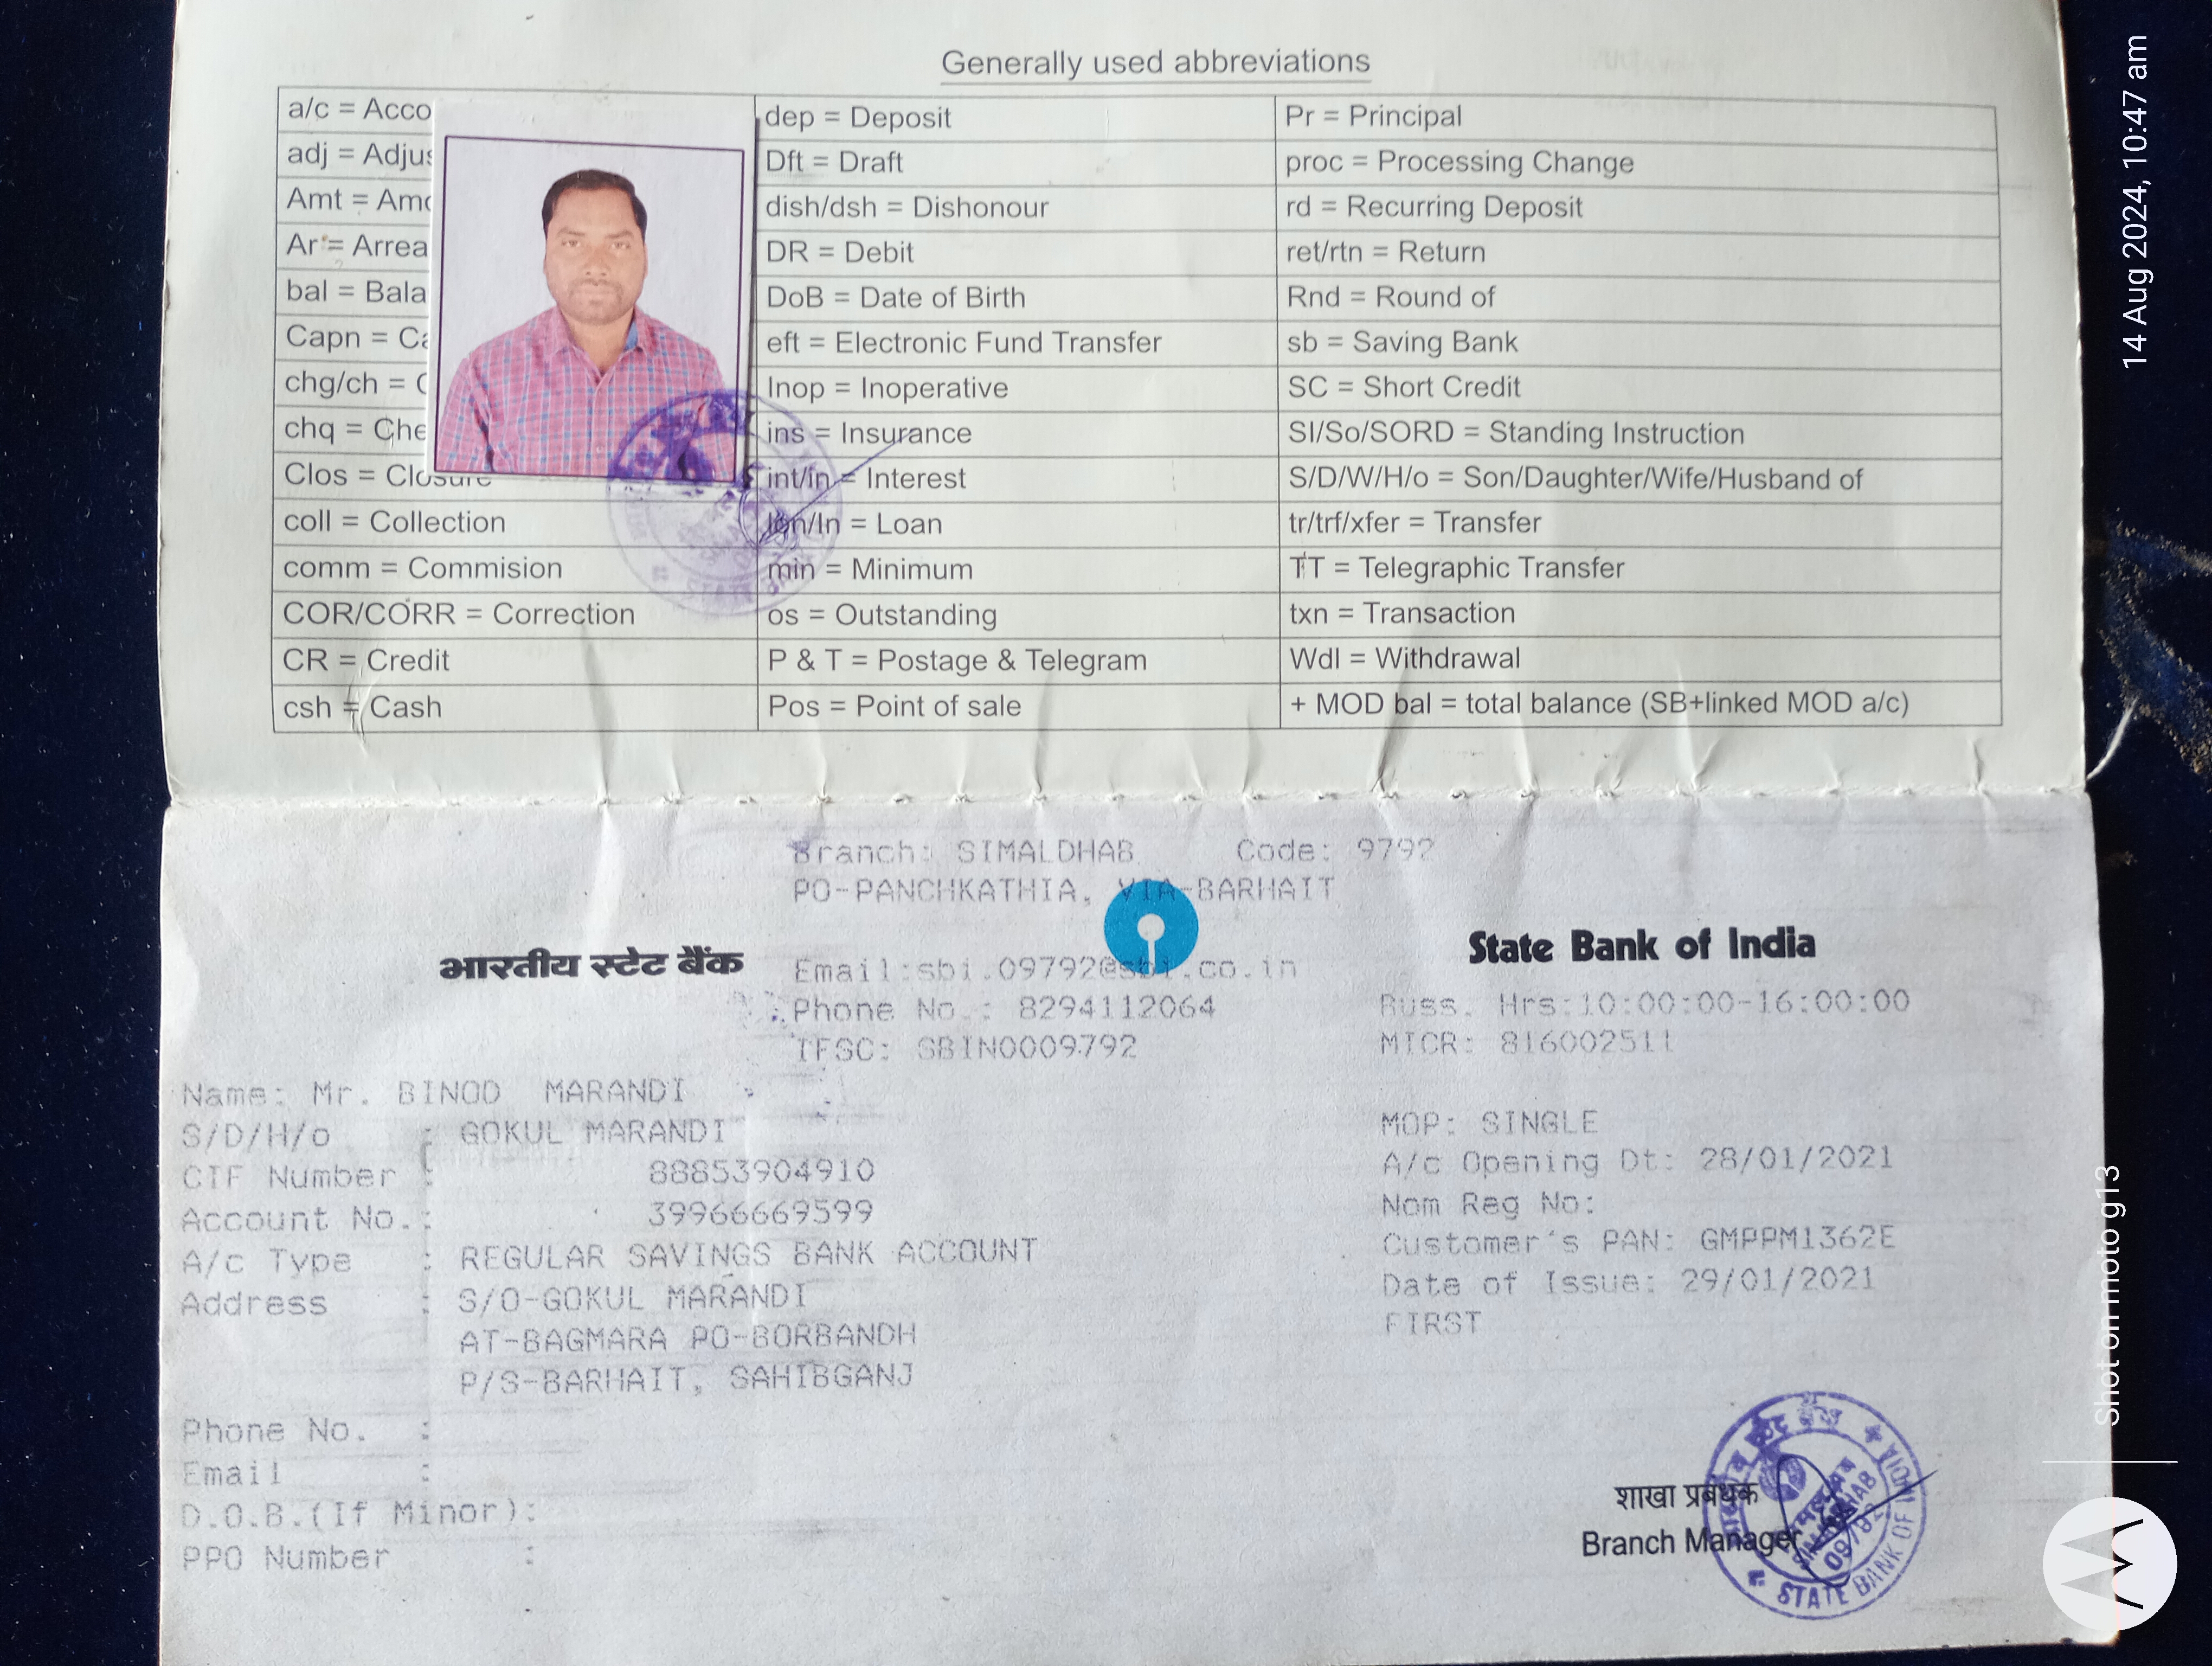 Generally used abbreviations
a/c = Acco
dep = Deposit
Pr = Principal
adj = Adjus
Dft = Draft
proc = Processing Change
Amt = Amo
dish/dsh = Dishonour
rd = Recurring Deposit
Ar = Arrea
DR = Debit
ret/rtn = Return
bal = Bala
DoB = Date of Birth
Rnd = Round of
Capn = Ca
eft = Electronic Fund Transfer
sb = Saving Bank
chg/ch = C
Inop = Inoperative
SC = Short Credit
chq = Che
ins = Insurance
SI/So/SORD = Standing Instruction
Clos = Closure
int/in = Interest
S/D/W/H/o = Son/Daughter/Wife/Husband of
coll = Collection
lon/ln = Loan
tr/trf/xfer = Transfer
comm = Commision
min = Minimum
TT = Telegraphic Transfer
COR/CORR = Correction
os = Outstanding
txn = Transaction
CR = Credit
P & T = Postage & Telegram
Wdl = Withdrawal
csh = Cash
Pos = Point of sale
+ MOD bal = total balance (SB+linked MOD a/c)
Branch: SIMALDHAB Code: 9792
PO-PANCHKATHIA, VIA-BARHAIT
भारतीय स्टेट बैंक
State Bank of India
Email:sbi.09792@sbi.co.in
Phone No.: 8294112064
Buss. Hrs:10:00:00-16:00:00
IFSC: SBIN0009792
MICR: 816002511
Name: Mr. BINOD MARANDI
S/D/H/o : GOKUL MARANDI
MOP: SINGLE
CIF Number : 88853904910
A/c Opening Dt: 28/01/2021
Account No.: 39966669599
Nom Reg No:
A/c Type : REGULAR SAVINGS BANK ACCOUNT
Customer's PAN: GMPPM1362E
Address : S/O-GOKUL MARANDI
Date of Issue: 29/01/2021
AT-BAGMARA PO-BORBANDH
FIRST
P/S-BARHAIT, SAHIBGANJ
Phone No. :
Email :
D.O.B.(If Minor):
PPO Number :
शाखा प्रबंधक
Branch Manager
STATE BANK OF INDIA
14 Aug 2024, 10:47 am
Shot on moto g13